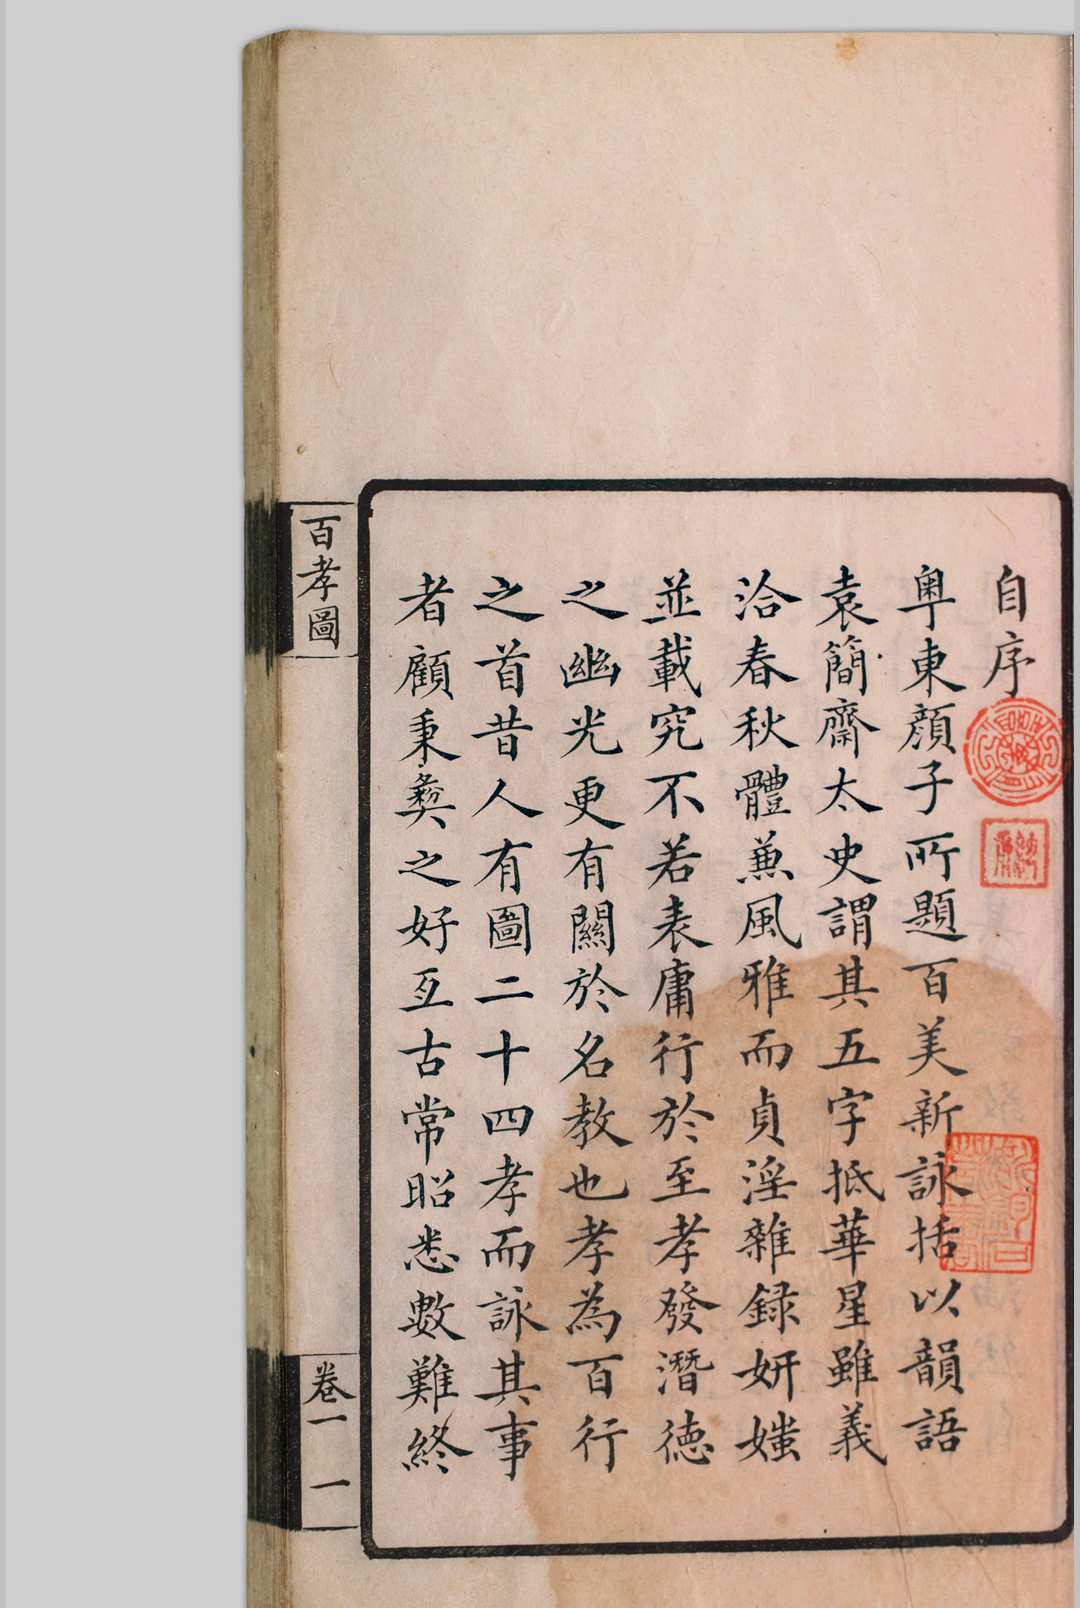 自序
粵東顔子所題百美新詠括以韻語
袁簡齋太史謂其五字抵華星雖義
洽春秋體兼風雅而貞淫雜録妍媸
並載究不若表庸行於至孝發潛德
之幽光更有關於名教也孝為百行
之首昔人有圖二十四孝而詠其事
者顧秉彝之好亙古常昭悉數難終
百孝圖
卷一
一